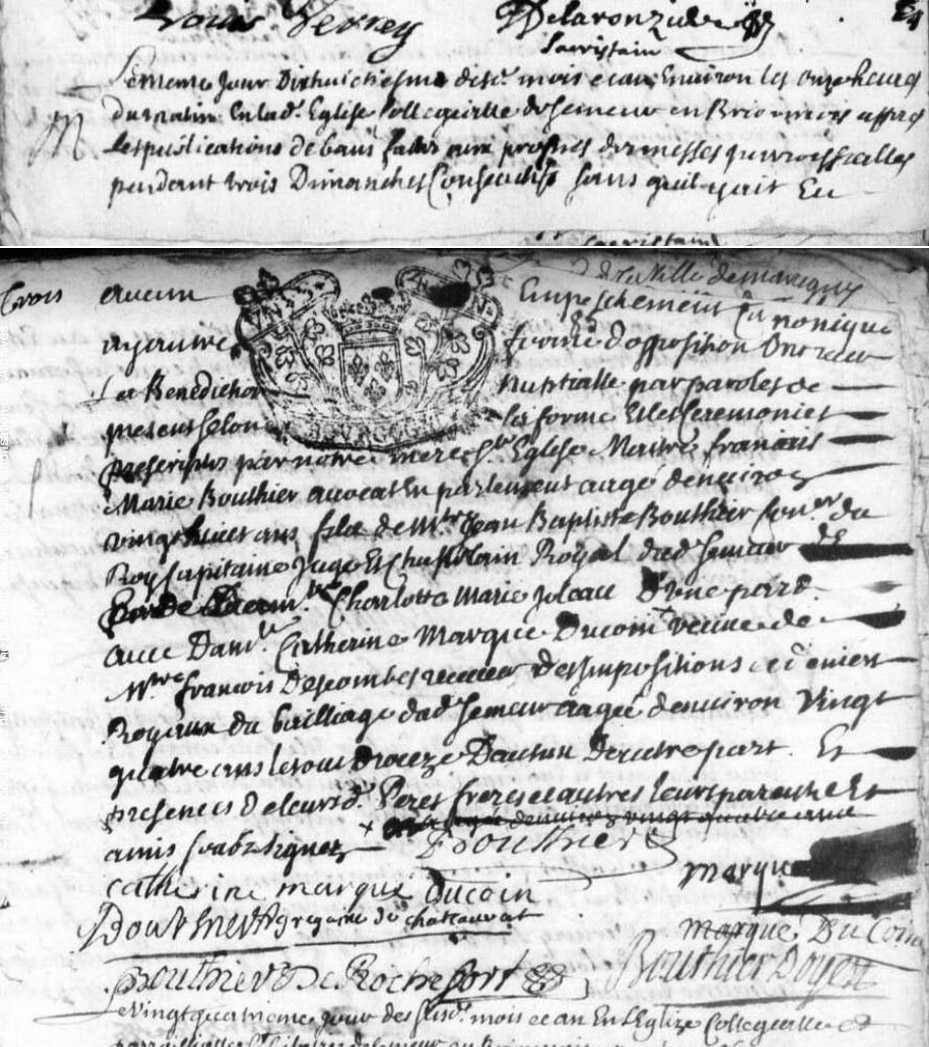 Louis Verrey Delaronzière
Sacristain
Le meme jour Dixhuictiesme desd. mois et an Environ les onze heures
Du matin En lad. Eglise Collegeialle de semeur en Brionnois apres
les publications de bans faites aux prosnes des messes parroissialles
pendant trois Dimanches Consecutifs sans qu'il y ait Eu
Sacristain
de la Ville de marcigny
trois aucun Empeschement Canonique
ny autre forme d'opposition Ont receu
La Benediction Nuptialle par paroles de
present selon les forme Et les Ceremonies
prescriptes par notre mere Ste Eglise Maitre francois
Marie Bouthier avocat En parlement aagé d'environ
vingt huict ans fils de Mre Jean Baptiste Bouthier Coner du
Roy Capitaine Juge Et Chastelain Royal dud. Semeur
Charlotte Marie D'une part.
avec Damlle Catherine Marque Ducoin veuve de
Mre francois Descombes receveur des Impositions et deniers
Royaux du bailliage dud. Semeur aagée d'environ Vingt
quatre ans le tout Dioceze D'autun D'autre part. Et
presences de leursd. Peres freres et autres leurs parents Et
amis soubsignez Bouthier
marque
catherine marque Ducoin
Bouthier gregaine de chateauvert
marque Du Coin
Bouthier De Rochefort Bouthier Doyen
Le Vingt quatrieme jour des susd. mois et an En L'Eglize Collegialle et